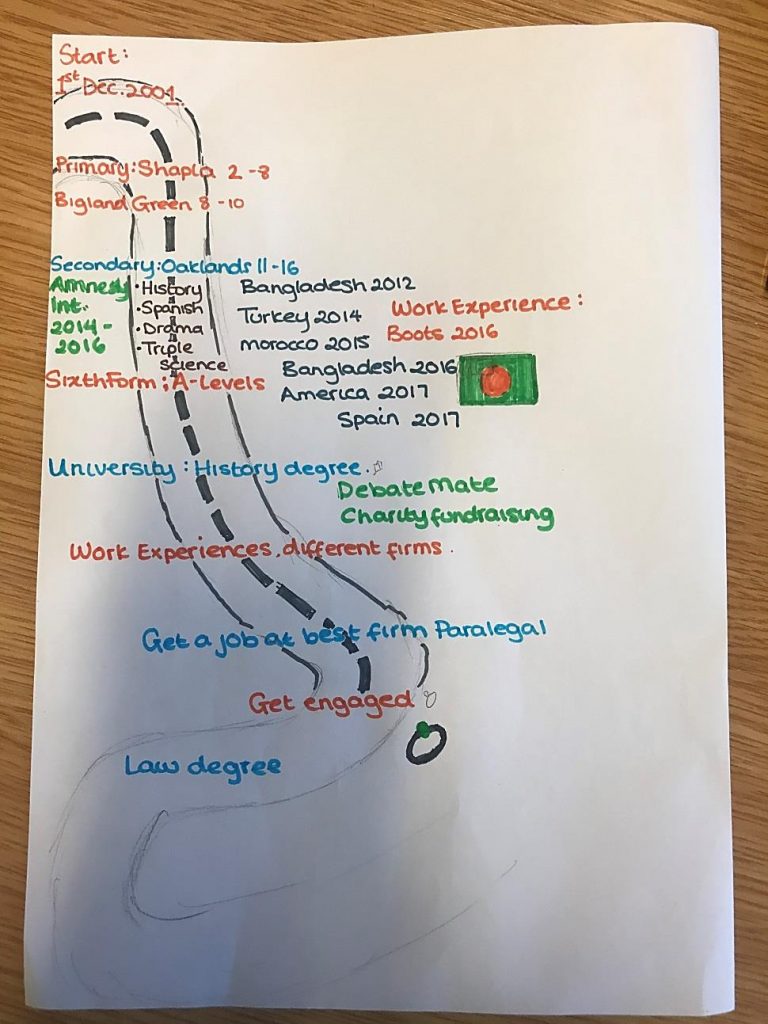 Start:
1st Dec. 2001.
Primary: Shapla 2-8
Bigland Green 8-10
Secondary: Oaklands 11-16
Amnesty
Int.
2014-
2016
•History
•Spanish
•Drama
•Triple
science
Bangladesh 2012
Turkey 2014
morocco 2015
Work Experience:
Boots 2016
Bangladesh 2016
America 2017
Spain 2017
Sixth Form; A-Levels
University: History degree.
Debate Mate
Charity fundraising
Work Experiences, different firms.
Get a job at best firm Paralegal
Get engaged
Law degree